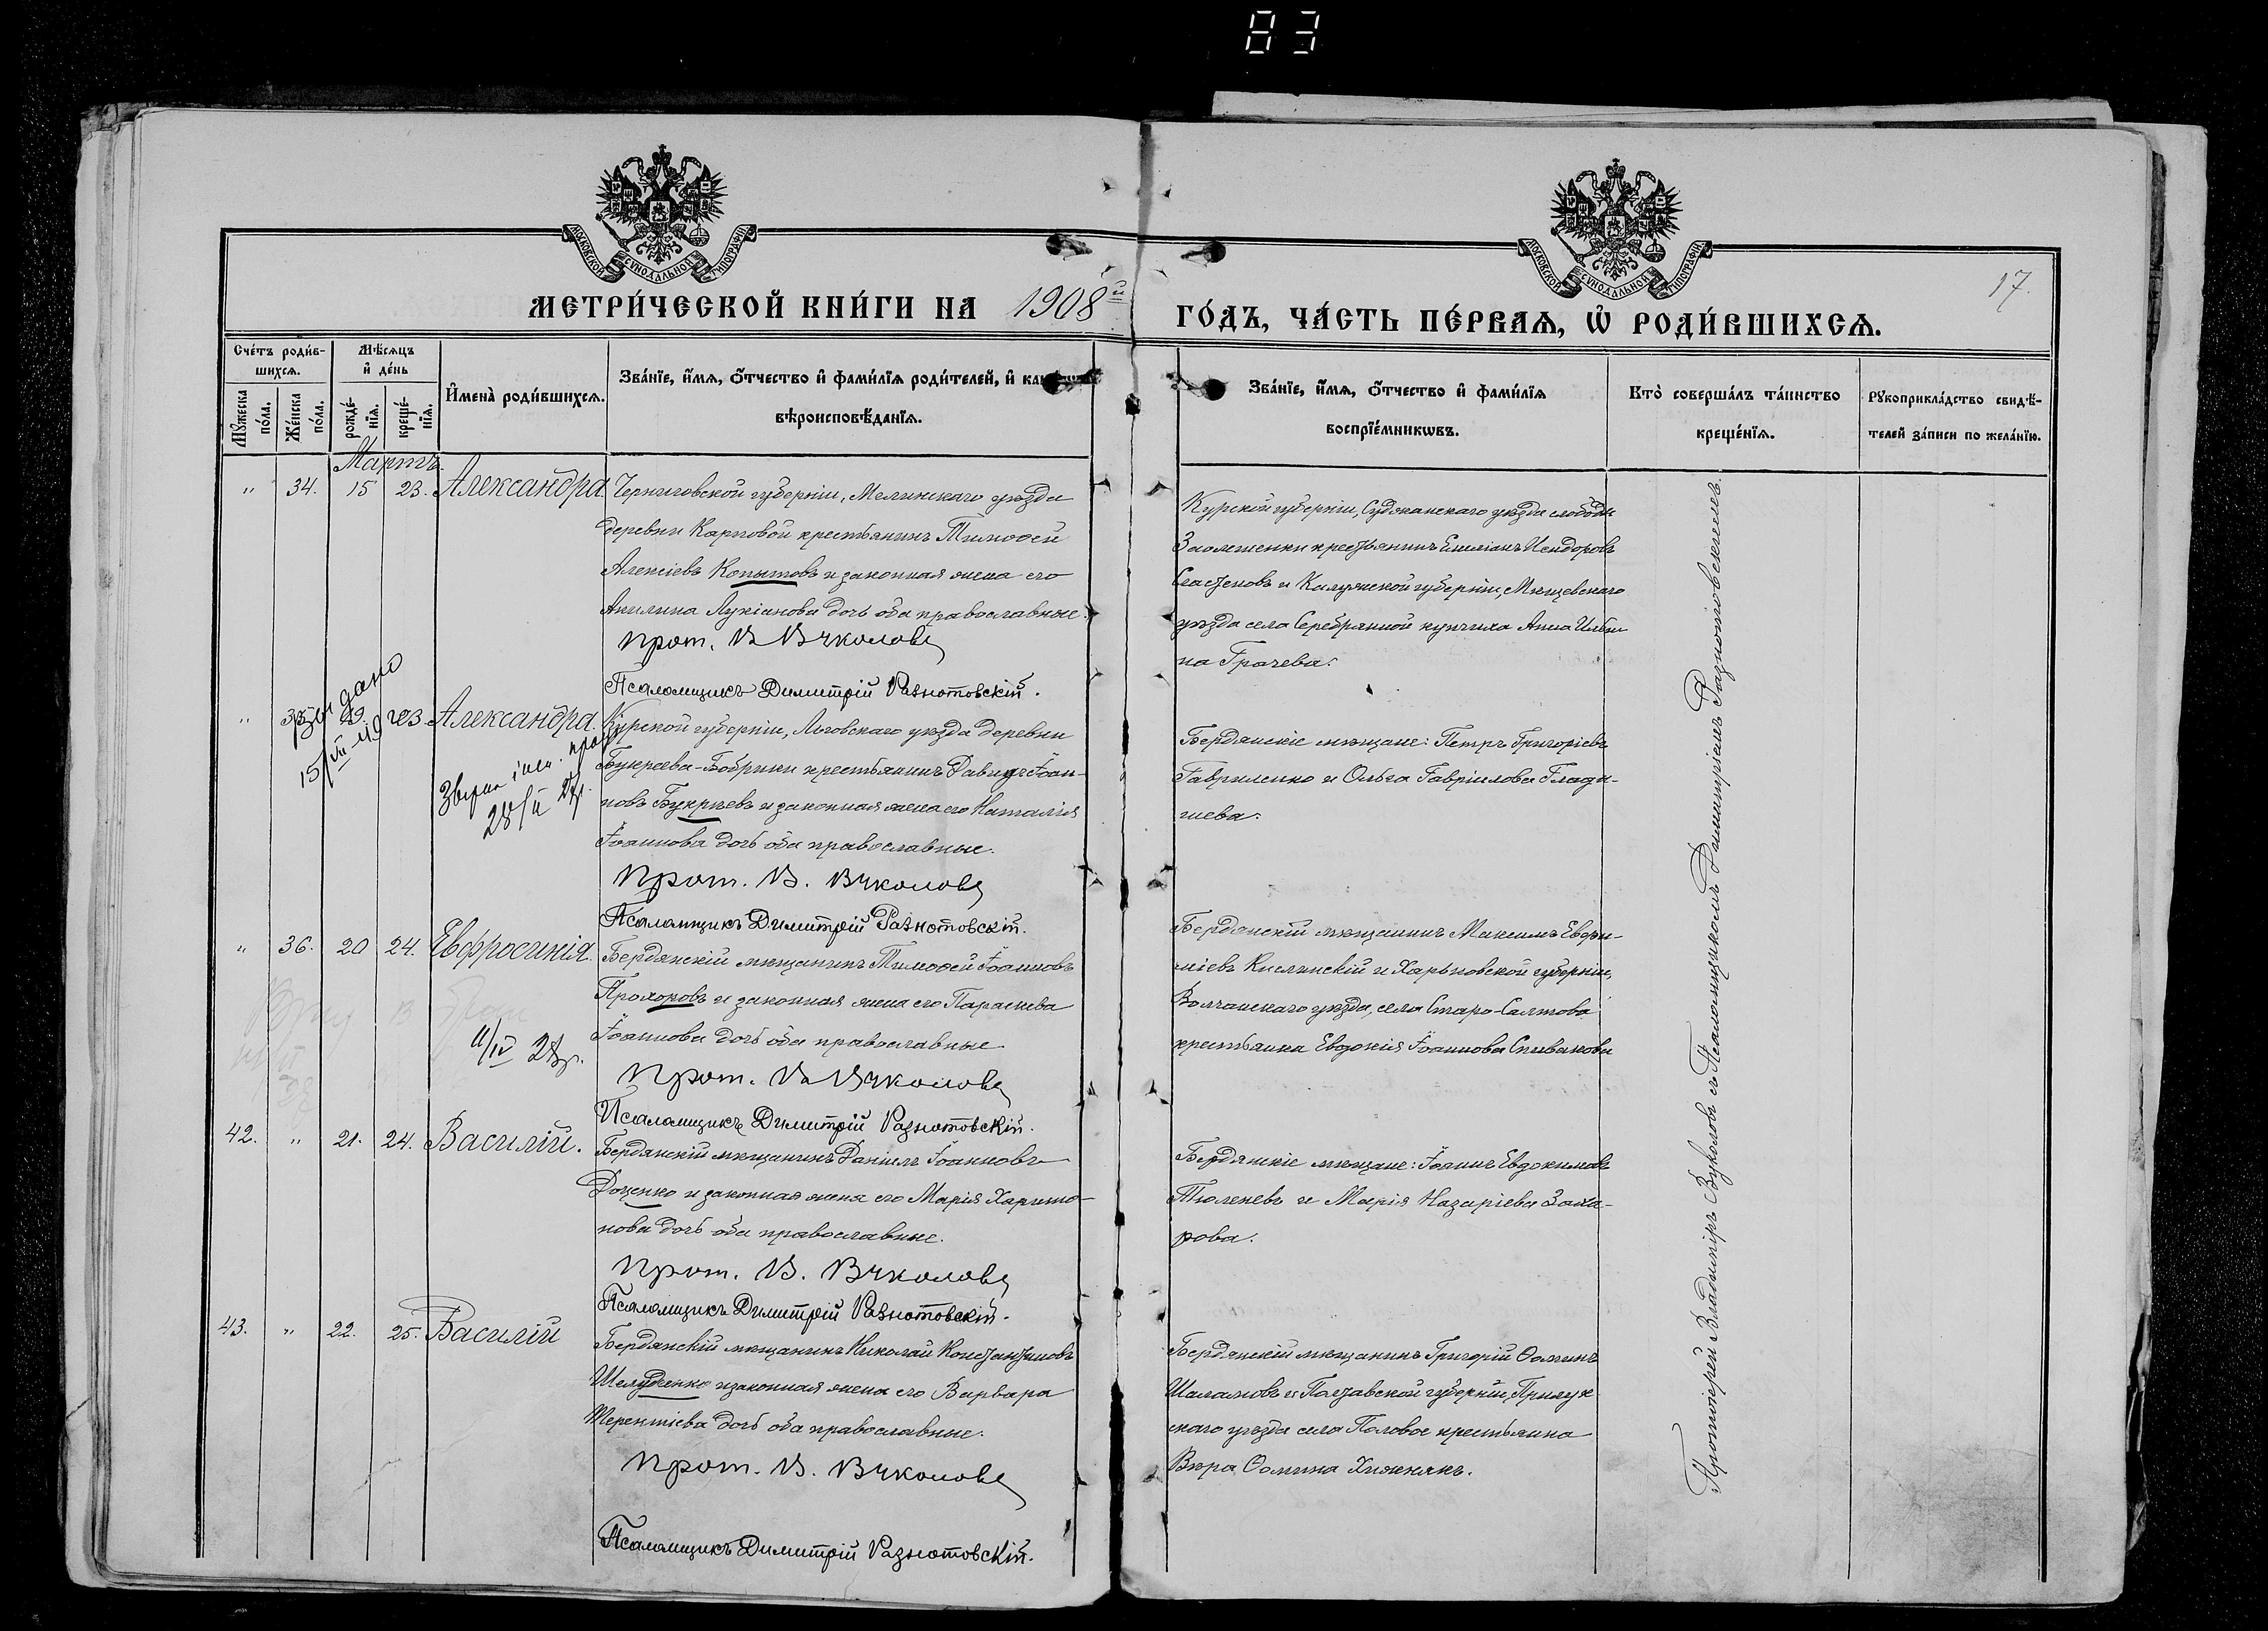 83
МОСКОВСКОЙ СѴНОДАЛЬНОЙ ТИПОГРАФІИ
МОСКОВСКОЙ СѴНОДАЛЬНОЙ ТИПОГРАФІИ
17.
МЕТРИ́ЧЕСКОЙ КНИ́ГИ НА 1908й ГО́ДЪ, ЧА́СТЬ ПЕ́РВАѦ, Ѡ҆ РОДИ́ВШИХСѦ.
Сче́тъ роди́в-
шихсѧ.
Мꙋжеска по́ла.
Же́нска по́ла.
Мѣ́сѧцъ
и҆ де́нь
рожде́-
нїѧ.
креще́-
нїѧ.
И҆мена̀ роди́вшихсѧ.
Зва́нїе, и҆́мѧ, ѻ҆́тчество и҆ фами́лїѧ роди́телей, и҆
вѣроисповѣ́данїѧ.
Зва́нїе, и҆́мѧ, ѻ҆́тчество и҆ фами́лїѧ
воспрїе́мникѡвъ.
Кто̀ соверша́лъ та́инство
креще́нїѧ.
Рꙋкоприкла́дство свидѣ́-
телей за́писи по жела́нїю.
Мартъ.
" 34. 15 23. Александра
Черниговской губерніи, Мглинскаго уѣзда
деревни Карповой крестьянинъ Тимоѳей
Алексіевъ Копытовъ и законная жена его
Акилина Лукіанова дочь оба православные.
Прот. В Вуколовъ
Псаломщикъ Димитрій Разнотовскій.
Курской губерніи, Суджанскаго уѣзда слободы
Заолешенки крестьянинъ Емиліанъ Исидоровъ
и Калужской губерніи, Мещевскаго
уѣзда села Серебрянной купчиха Анна Ильи-
на Грачева.
" 35. 19. 23. Александра.
дано
Курской губерніи, Льговскаго уѣзда деревни
Букреева-Бобрики крестьянинъ Давидъ Іоан-
новъ Букреевъ и законная жена его Наталія
Іоаннова дочь оба православные.
Прот. В. Вуколовъ
Псаломщикъ Димитрій Разнотовскій.
Бердянскіе мѣщане: Петръ Григоріевъ
Гавриленко и Ольга Гавріилова Глады-
шева.
" 36. 20 24. Евфросинія.
11/IV 28р.
Бердянскій мѣщанинъ Тимоѳей Іоанновъ
Прохоровъ и законная жена его Параскева
Іоаннова дочь оба православные
Прот. В Вуколовъ
Псаломщикъ Димитрій Разнотовскій.
Бердянскій мѣщанинъ Максимъ Евфи-
міевъ Кислинскій и Харьковской губерніи,
Волчанскаго уѣзда, села Старо-Салтова
крестьянка Евдокія Іоаннова Спивакова
42. " 21. 24. Василій.
Бердянскій мѣщанинъ Даніилъ Іоанновъ
Доценко и законная жена его Марія Харито-
нова дочь оба православные.
Прот. В. Вуколовъ
Псаломщикъ Димитрій Разнотовскій.
Бердянскіе мѣщане: Іоаннъ Евдокимовъ
Тюленевъ и Марія Назаріева Заха-
рова.
43. " 22. 25. Василій
Бердянскій мѣщанинъ Николай Константиновъ
Шелудченко и законная жена его Варвара
Терентіева дочь оба православные.
Прот. В. Вуколовъ
Псаломщикъ Димитрій Разнотовскій.
Бердянскій мѣщанинъ Григорій Ѳоминъ
Шаламовъ и Полтавской губерніи, Прилук-
скаго уѣзда села Половое крестьянка
Вѣра Ѳомина Хижнякъ.
Протоіерей Владимиръ Вуколовъ съ Псаломщикомъ Димитріемъ Разнотовскимъ.